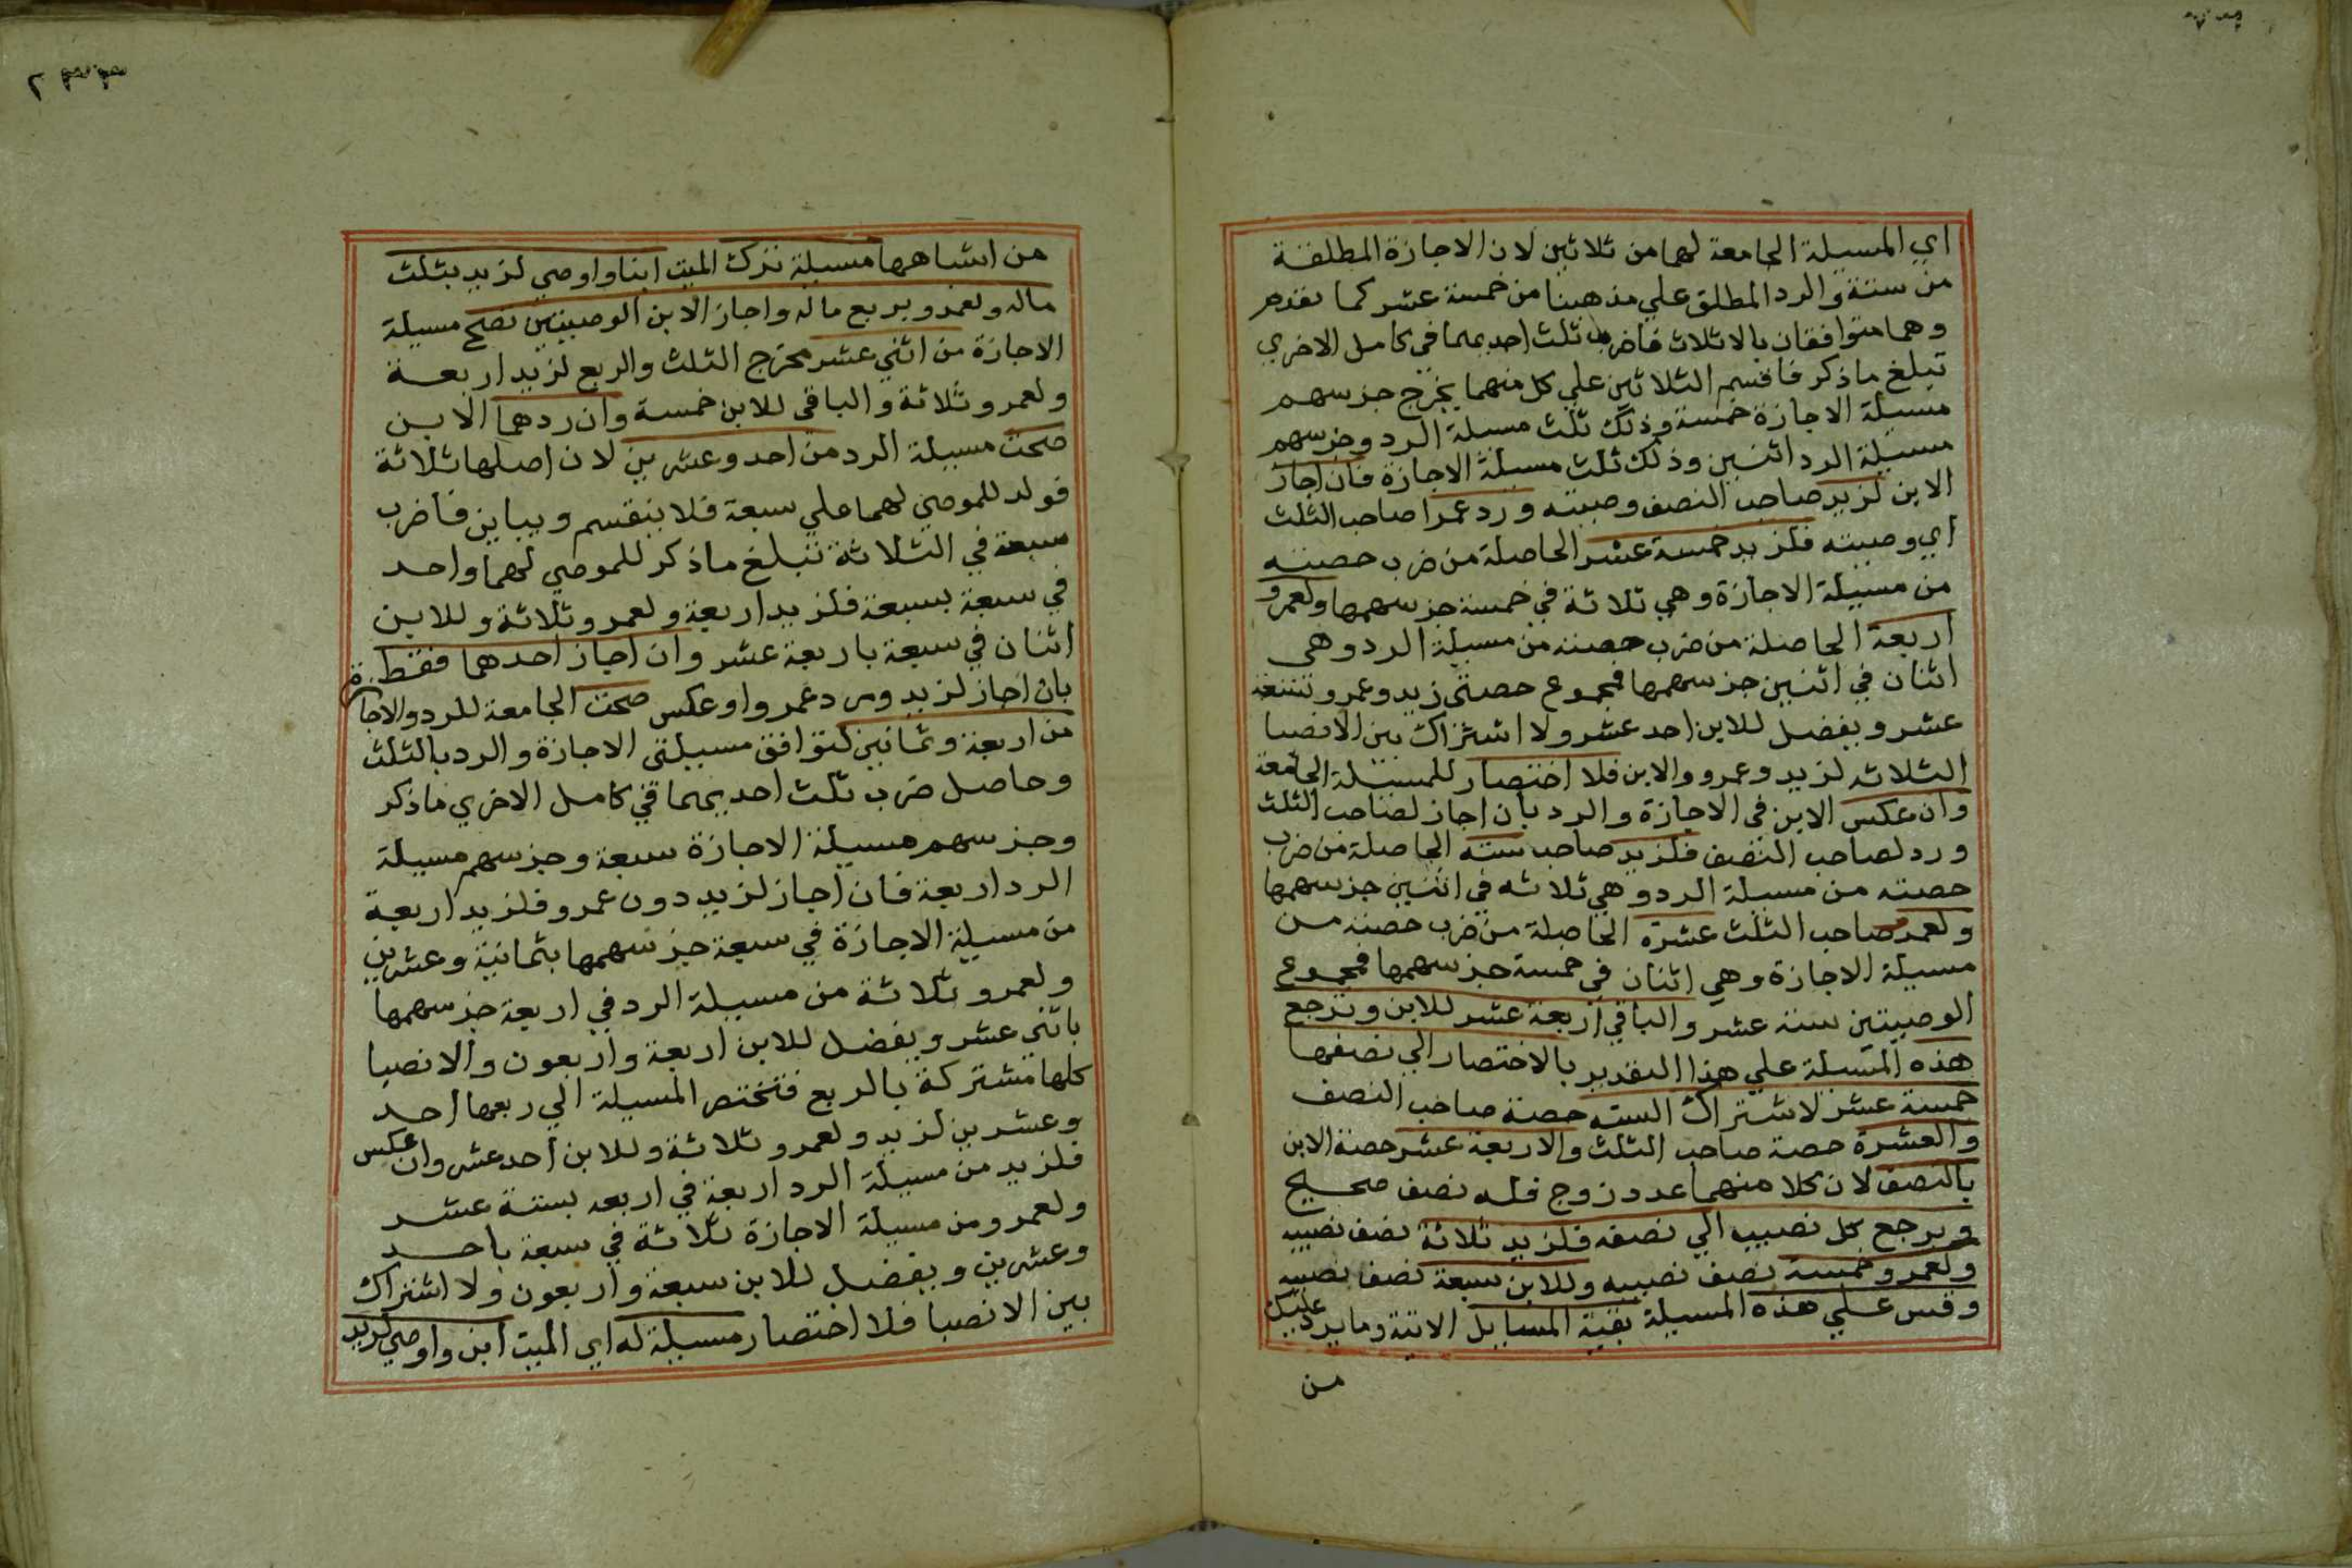 اي المسيلة الجامعة لهما من ثلاثين لان الاجازة المطلقة
من ستة والرد المطلق علي مذهبنا من خمسة عشر كما تقدم
وهما متوافقان بالاثلاث فاضرب ثلث احديهما في كامل الاخري
تبلغ ما ذكر فاقسم الثلاثين علي كل منهما يخرج جز سهم
مسيلة الاجازة خمسة وذلك ثلث مسيلة الرد وجز سهم
مسيلة الرد اثنين وذلك ثلث مسيلة الاجازة فان اجاز
الابن لزيد صاحب النصف وصيته ورد عمرا صاحب الثلث
اي وصيته فلزيد خمسة عشر الحاصلة من ضرب حصته
من مسيلة الاجازة وهي ثلاثة في خمسة جز سهمها ولعمرو
اربعة الحاصلة من ضرب حصته من مسيلة الرد وهي
اثنان في اثنين جز سهمها فمجموع حصتي زيد وعمرو تسعة
عشر ويفضل للابن احد عشر ولا اشتراك بين الانصبا
الثلاثه لزيد وعمرو والابن فلا اختصار للمسيلة الجامعة
وان عكس الابن في الاجازة والرد بان اجاز لصاحب الثلث
ورد لصاحب النصف فلزيد صاحب سته الحاصلة من ضرب
حصته من مسيلة الرد وهي ثلاثه في اثنين جز سهمها
ولعمرو صاحب الثلث عشرة الحاصلة من ضرب حصته من
مسيلة الاجازة وهي اثنان في خمسة جز سهمها فمجموع
الوصيتين ستة عشر والباقي اربعة عشر للابن وترجع
هذه المسيلة علي هذا التقدير بالاختصار الي نصفها
خمسة عشر لاشتراك السته حصة صاحب النصف
والعشرة حصة صاحب الثلث والاربعة عشر حصة الابن
بالنصف لان كلا منهما عدد زوج فله نصف صحيح
ويرجع كل نصيب الي نصفه فلزيد ثلاثة نصف نصيبه
ولعمرو خمسة نصف نصيبه وللابن سبعة نصف نصيبه
وقس علي هذه المسيلة بقية المسايل الاتية وما يرد عليك
من
من اشباهها مسيلة ترك الميت ابنا واوصي لزيد بثلث
ماله ولعمرو بربع ماله واجاز الابن الوصيتين تصح مسيلة
الاجازة من اثني عشر مخرج الثلث والربع لزيد اربعة
ولعمرو ثلاثة والباقي للابن خمسة وان ردهما الابن
صحت مسيلة الرد من احد وعشرين لان اصلها ثلاثة
فولد للموصي لهما علي سبعة فلا ينقسم ويباين فاضرب
سبعة في الثلاثة تبلغ ما ذكر للموصي لهما واحد
في سبعة بسبعة فلزيد اربعة ولعمرو ثلاثة وللابن
اثنان في سبعة باربعة عشر وان اجاز احدهما فقط
بان اجاز لزيد ورد عمروا وعكس صحت الجامعة للرد والاجازة
من اربعة وثمانين لتوافق مسيلتي الاجازة والرد بالثلث
وحاصل ضرب ثلث احديهما في كامل الاخري ما ذكر
وجز سهم مسيلة الاجازة سبعة وجز سهم مسيلة
الرد اربعة فان اجاز لزيد دون عمرو فلزيد اربعة
من مسيلة الاجازة في سبعة جز سهمها بثمانية وعشرين
ولعمرو ثلاثة من مسيلة الرد في اربعة جز سهمها
باثني عشر ويفضل للابن اربعة واربعون والانصبا
كلها مشتركة بالربع فتختصر المسيلة الي ربعها احد
وعشرين لزيد ولعمرو ثلاثة وللابن احد عشر وان عكس
فلزيد من مسيلة الرد اربعة في اربعه بستة عشر
ولعمرو من مسيلة الاجازة ثلاثة في سبعة باحد
وعشرين ويفضل للابن سبعة واربعون ولا اشتراك
بين الانصبا فلا اختصار مسيلة له اي الميت ابن واوصي لزيد